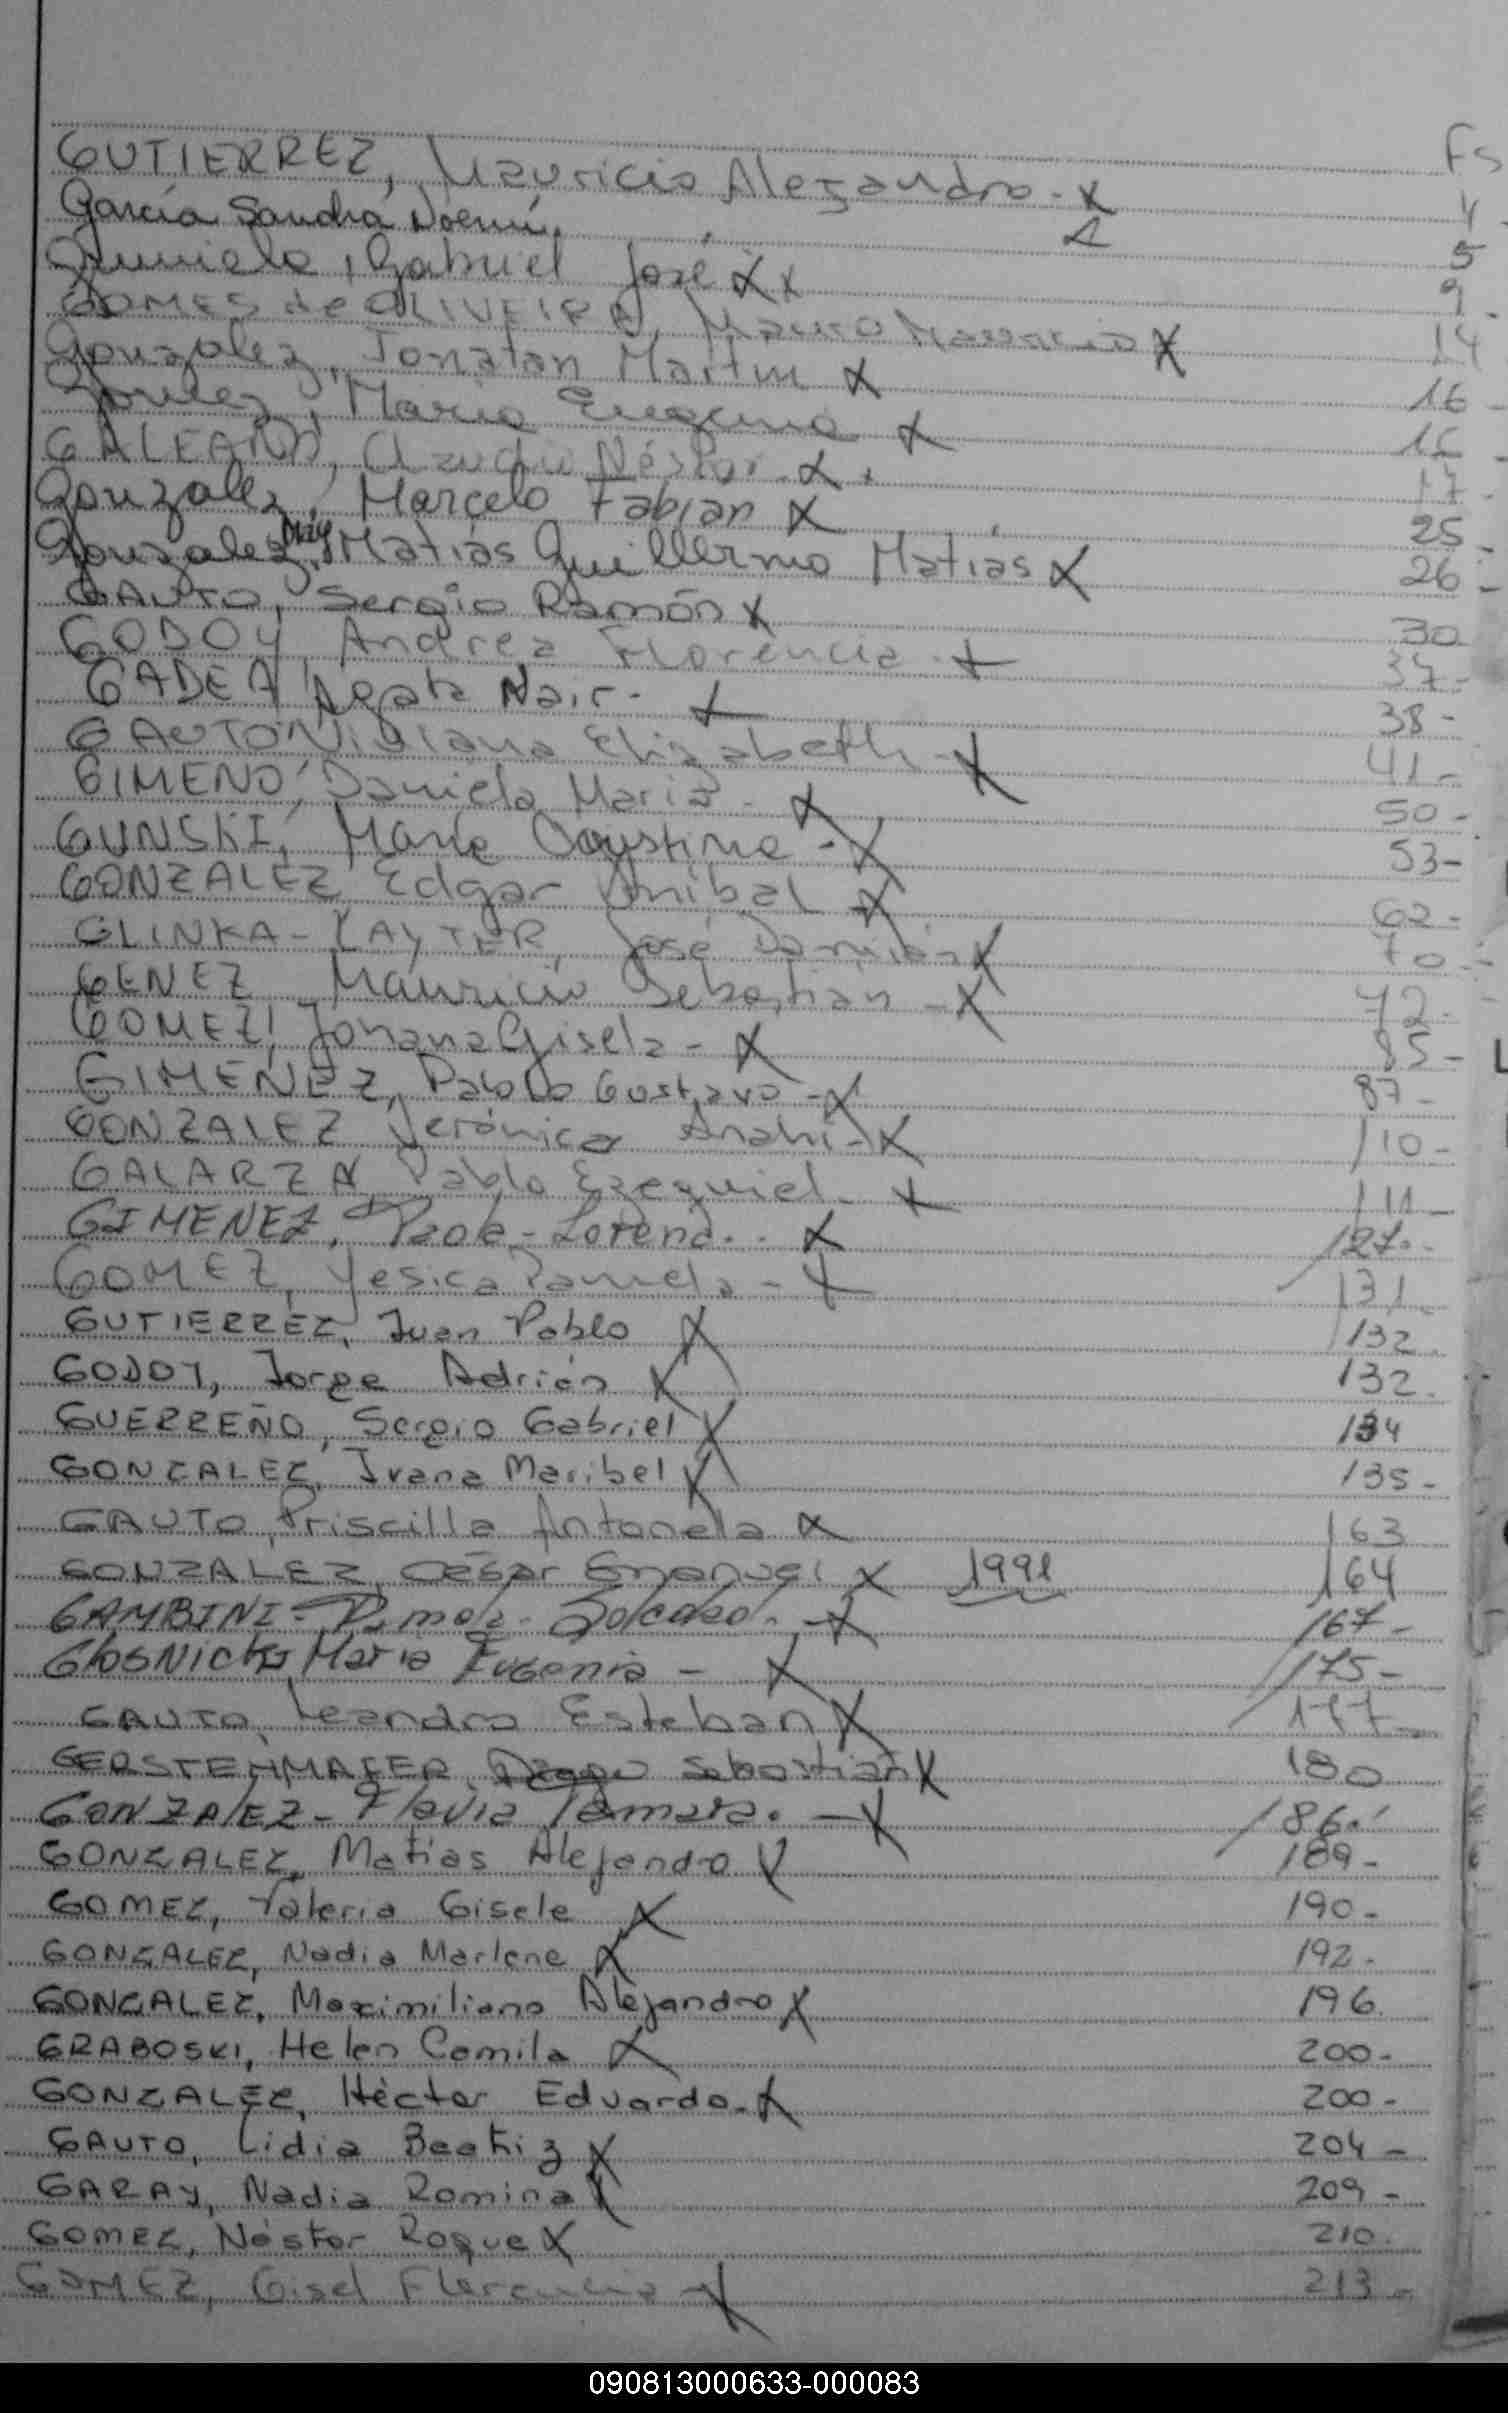 Fs
GUTIERREZ, Mauricio Alejandro - X 4
García Sandra Noemí. 5
Gabriel José X X 9.
GOMES de OLIVEIRA, Mauro X 14
Gonzalez, Jonatan Martin X 16
María Eugenia X 16
GALEANO, Claudio Néstor X. 17
Gonzalez, Marcelo Fabian X 25
Gonzalez, Matias Guillermo Matias X 26
GAUTO, Sergio Ramón X 30
GODOY, Andrea Florencia X 37-
GADEA Agata Nair - X 38-
GAUTO Viviana Elizabeth - X 41-
GIMENO, Daniela María - X 50-
GUNSKI, María Agustina - X 53-
GONZALEZ Edgar Anibal X 62-
GLINKA - José Damián X 70-
GENEZ Mauricio Sebastian - X 72-
GOMEZ, Johana Gisela - X 85-
GIMENEZ, Pablo Gustavo - X 87-
GONZALEZ Verónica Anahi - X 110-
GALARZA Pablo Ezequiel - X 111-
GIMENEZ, Paola - Lorena.. X 127.-
GOMEZ, Yesica Pamela - X 131-
GUTIERREZ, Juan Pablo X 132
GODOY, Jorge Adrián X 132.
GUERREÑO, Sergio Gabriel X 134
GONZALEZ, Ivana Maribel X 135-
GAUTO, Priscilla Antonela X 163
GONZALEZ, César Emanuel X 1991 164
GAMBINI - Pamela - Soledad. - X 167-
María Eugenia - X 175-
GAUTO, Leandro Esteban X 177-
Sebastian X 180
GONZALEZ - Flavia Tamara. - X 186.
GONZALEZ, Matias Alejandro X 189-
GOMEZ, Valeria Gisele X 190-
GONZALEZ, Nadia Marlene X 192-
GONZALEZ, Maximiliano Alejandro X 196.
GRABOSKI, Helen Camila X 200-
GONZALEZ, Héctor Eduardo - X 200-
GAUTO, Lidia Beatriz X 204-
GARAY, Nadia Romina X 209-
GOMEZ, Néstor Roque X 210.
GOMEZ, Gisel Florencia - X 213-
090813000633-000083